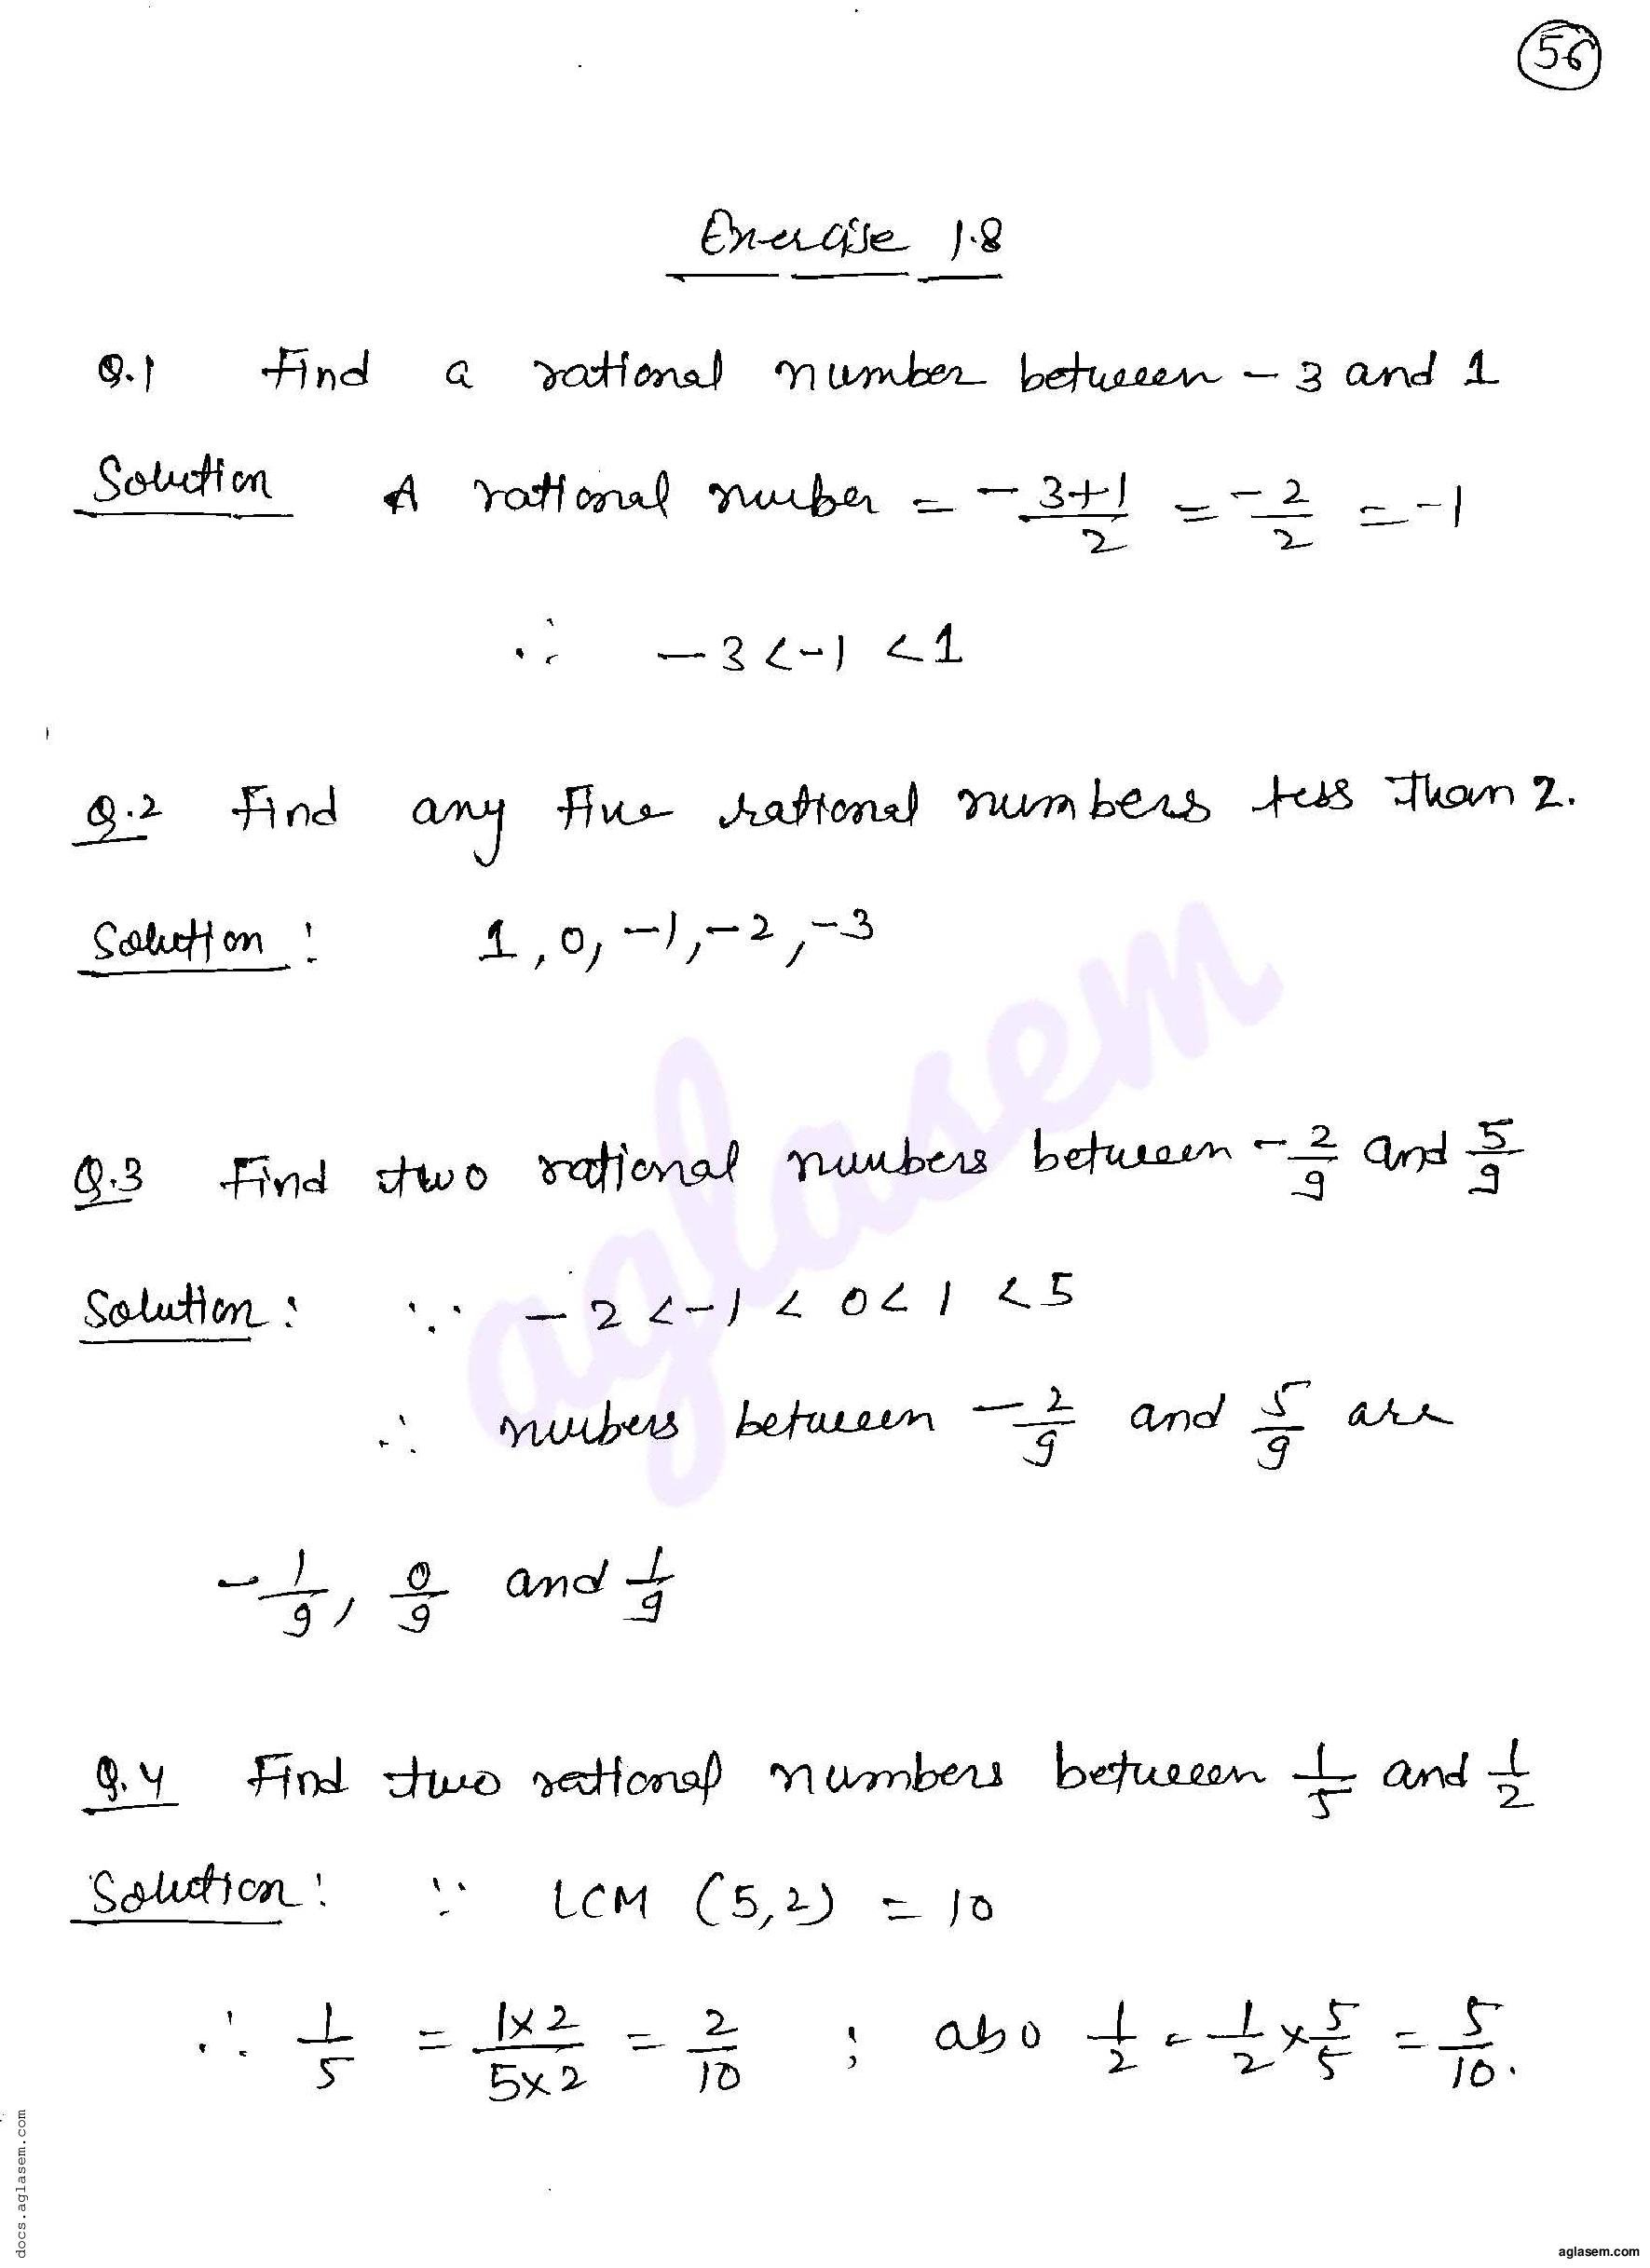 56
Exercise 1.8
Q.1 Find a rational number between -3 and 1
Solution A rational number = -3+1/2 = -2/2 = -1
∴ -3 < -1 < 1
Q.2 Find any five rational numbers less than 2.
Solution: 1, 0, -1, -2, -3
Q.3 Find two rational numbers between -2/9 and 5/9
Solution: ∵ -2 < -1 < 0 < 1 < 5
∴ numbers between -2/9 and 5/9 are
-1/9, 0/9 and 1/9
Q.4 Find two rational numbers between 1/5 and 1/2
Solution: ∵ LCM (5,2) = 10
∴ 1/5 = 1×2/5×2 = 2/10 ; also 1/2 = 1/2 × 5/5 = 5/10.
aglasem
docs.aglasem.com
aglasem.com